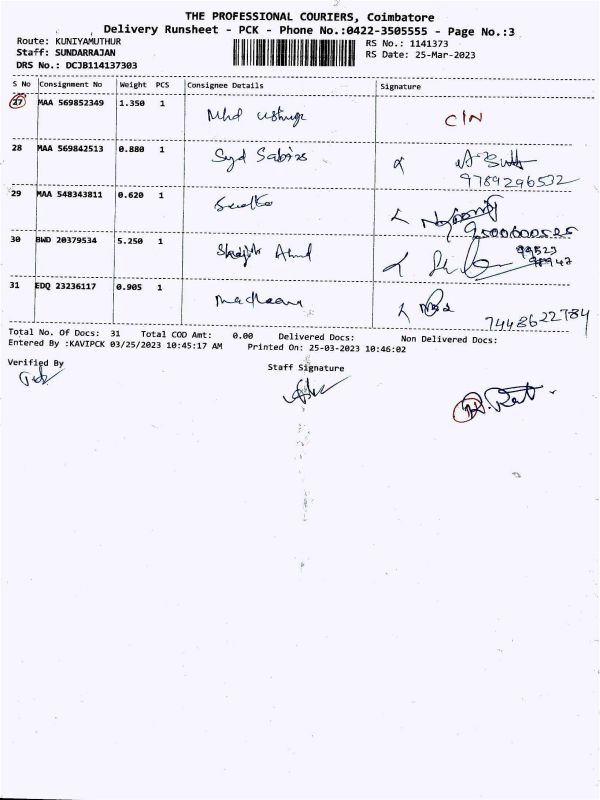 THE PROFESSIONAL COURIERS, Coimbatore
Delivery Runsheet - PCK - Phone No.:0422-3505555 - Page No.:3
Route: KUNIYAMUTHUR
RS No.: 1141373
Staff: SUNDARRAJAN
RS Date: 25-Mar-2023
DRS No.: DCJB114137303
S No Consignment No Weight PCS Consignee Details Signature
27 MAA 569852349 1.350 1 Mhd C/N
28 MAA 569842513 0.880 1 Syd
9789296532
29 MAA 548343811 0.620 1
30 BWD 20379534 5.250 1
31 EDQ 23236117 0.905 1
7448622784
Total No. Of Docs: 31 Total COD Amt: 0.00 Delivered Docs: Non Delivered Docs:
Entered By :KAVIPCK 03/25/2023 10:45:17 AM Printed On: 25-03-2023 10:46:02
Verified By
Staff Signature